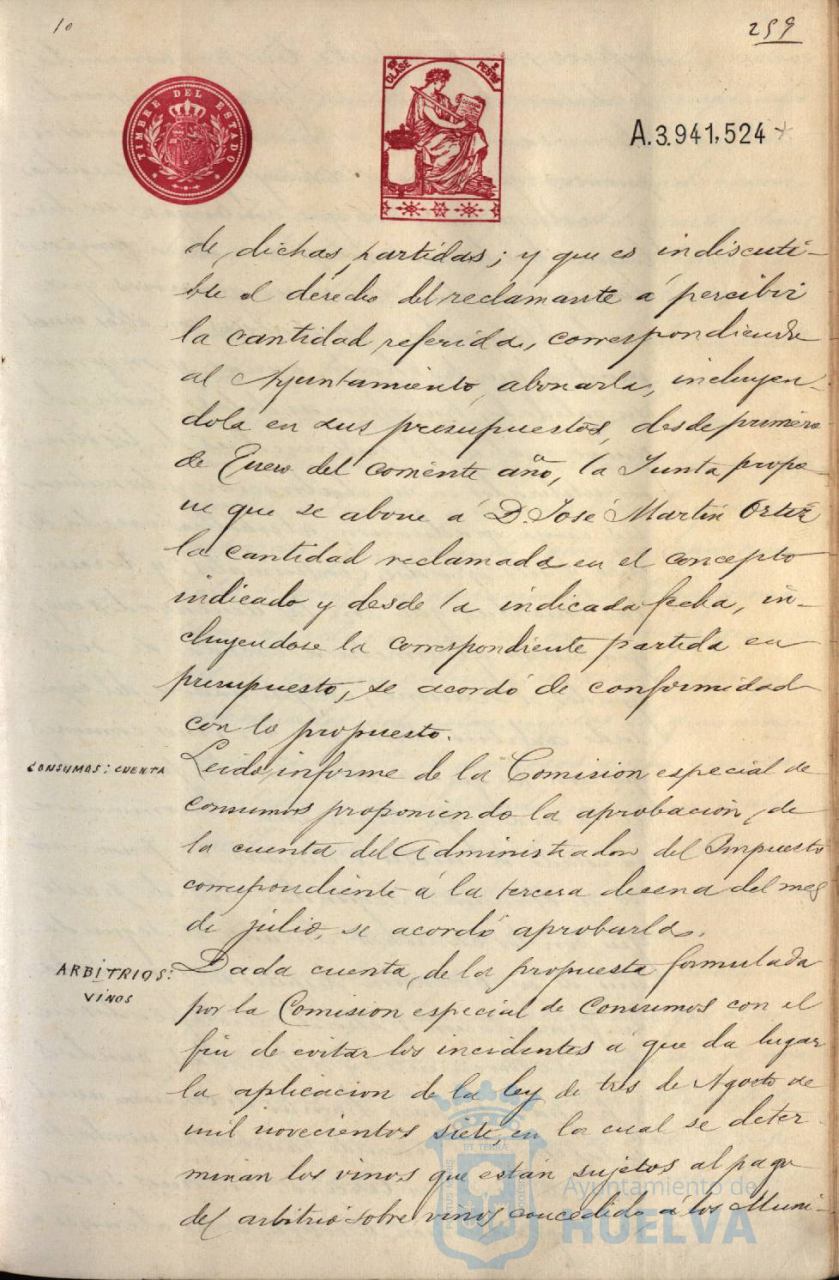 10
259
TIMBRE DEL ESTADO
CLASE
PESETA
A.3.941,524
de dichas partidas; y que es indiscuti-
ble el derecho del reclamante á percibir
la cantidad referida, correspondiendo
al Ayuntamiento abonarla, incluyen-
dola en sus presupuestos, desde primero
de Enero del corriente año, la Junta propo
ne que se abone á D. José Martin Ortiz
la cantidad reclamada en el concepto
indicado y desde la indicada fecha, in-
cluyendose la correspondiente partida en
presupuesto, se acordó de conformidad
con lo propuesto.
CONSUMOS: CUENTA
Leido informe de la Comision especial de
consumos proponiendo la aprobacion de
la cuenta del Administrador del Impuesto
correspondiente á la tercera decena del mes
de julio, se acordó aprobarla.
ARBITRIOS:
VINOS
Dada cuenta de la propuesta formulada
por la Comision especial de Consumos con el
fin de evitar los incidentes á que da lugar
la aplicacion de la ley de tres de Agosto de
mil novecientos siete, en la cual se deter
minan los vinos que están sujetos al pago
del arbitrio sobre vinos concedido a los Muni-
Ayuntamiento de
HUELVA